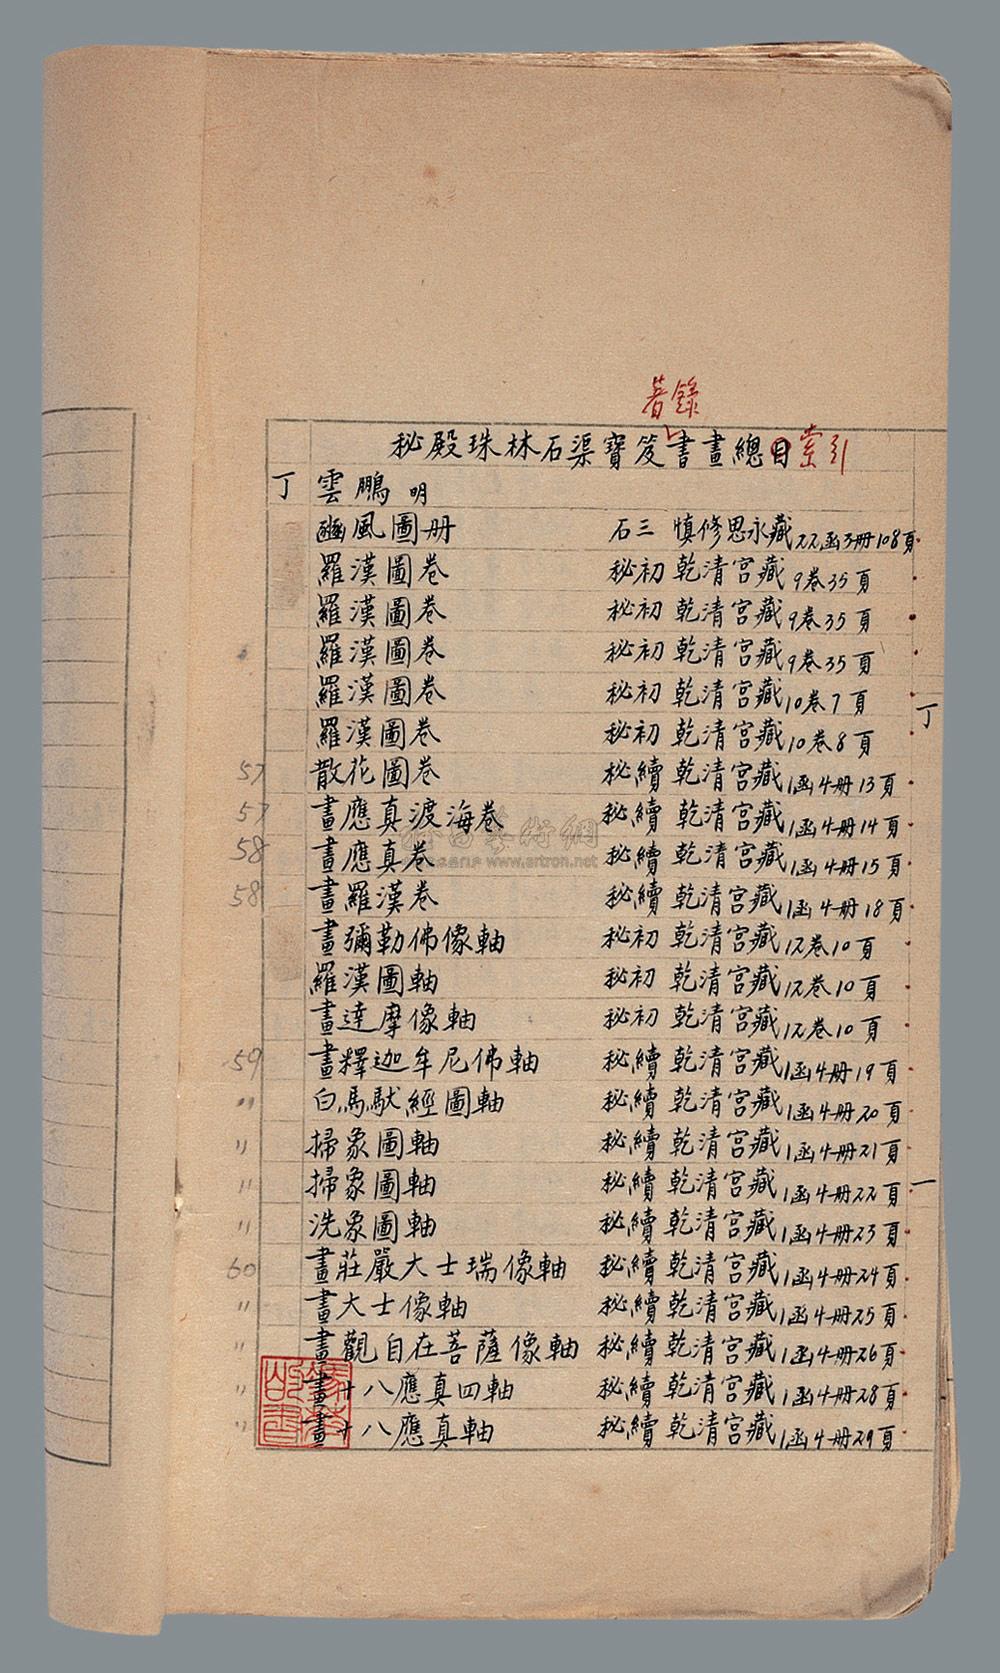 著錄
秘殿珠林石渠寶笈書畫總目索引
丁 雲鵬 明
豳風圖册 石三 慎修思永藏 22函3册108頁
羅漢圖卷 秘初 乾清宮藏 9卷35頁
羅漢圖卷 秘初 乾清宮藏 9卷35頁
羅漢圖卷 秘初 乾清宮藏 9卷35頁
羅漢圖卷 秘初 乾清宮藏 10卷7頁
丁
羅漢圖卷 秘初 乾清宮藏 10卷8頁
57 散花圖卷 秘續 乾清宮藏 1函4册13頁
57 畫應真渡海卷 秘續 乾清宮藏 1函4册14頁
58 畫應真卷 秘續 乾清宮藏 1函4册15頁
www.artron.net
58 畫羅漢卷 秘續 乾清宮藏 1函4册18頁
畫彌勒佛像軸 秘初 乾清宮藏 12卷10頁
羅漢圖軸 秘初 乾清宮藏 12卷10頁
畫達摩像軸 秘初 乾清宮藏 12卷10頁
59 畫釋迦牟尼佛軸 秘續 乾清宮藏 1函4册19頁
" 白馬馱經圖軸 秘續 乾清宮藏 1函4册20頁
" 掃象圖軸 秘續 乾清宮藏 1函4册21頁
" 掃象圖軸 秘續 乾清宮藏 1函4册22頁
一
" 洗象圖軸 秘續 乾清宮藏 1函4册23頁
60 畫莊嚴大士瑞像軸 秘續 乾清宮藏 1函4册24頁
" 畫大士像軸 秘續 乾清宮藏 1函4册25頁
" 畫觀自在菩薩像軸 秘續 乾清宮藏 1函4册26頁
" 畫十八應真四軸 秘續 乾清宮藏 1函4册28頁
" 畫十八應真軸 秘續 乾清宮藏 1函4册29頁